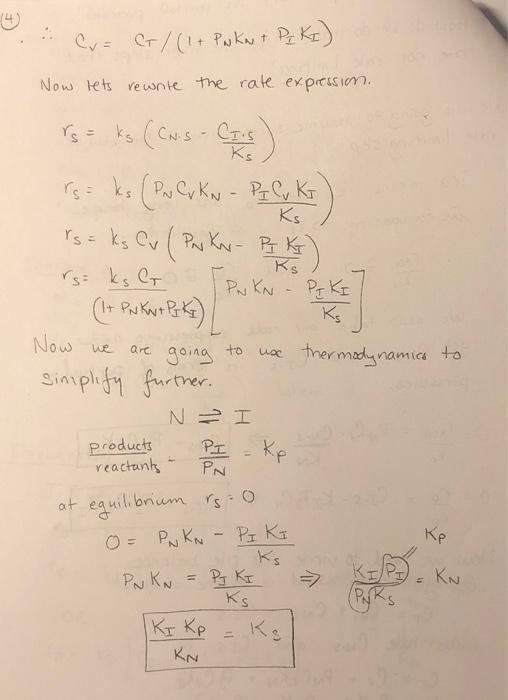 (4)
∴ Cv = CT / (1 + PNKN + PIKI)
Now lets rewrite the rate expression.
rs = ks (CN·S - CI·S / Ks)
rs = ks (PN Cv KN - PI Cv KI / Ks)
rs = ks Cv (PN KN - PI KI / Ks)
rs = ks CT / (1 + PNKN + PIKI) [PN KN - PI KI / Ks]
Now we are going to use thermodynamics to
simplify further.
N ⇌ I
products / reactants - PI / PN = Kp
at equilibrium rs = 0
0 = PN KN - PI KI / Ks
Kp
PN KN = PI KI / Ks ⇒ KI PI / PN Ks = KN
KI Kp / KN = Ks